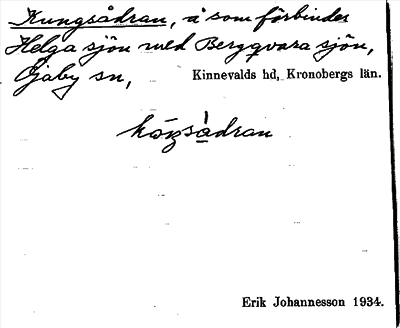 Kungsådran, å som förbinder
Helga sjön med Bergqvara sjön,
Öjaby sn, Kinnevalds hd, Kronobergs län.
kóŋsà̱dran
Erik Johannesson 1934.